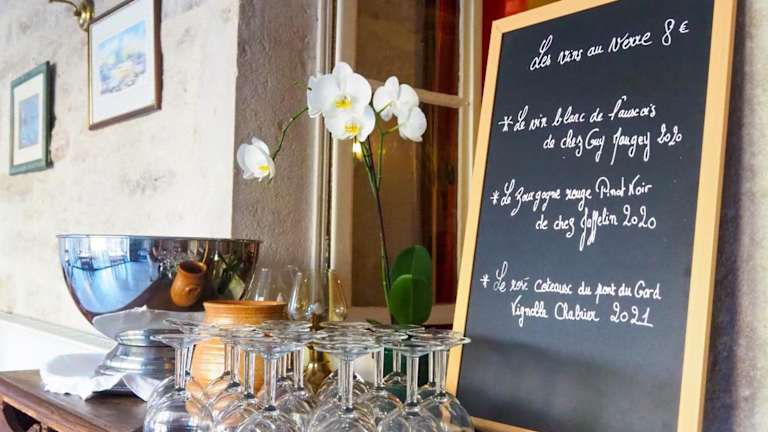 Les vins au verre 8 €
* Le vin blanc de l'auxois
de chez Guy 2020
* Le Bourgogne rouge Pinot Noir
de chez Jaffelin 2020
* Le rosé coteaux du pont du Gard
Vignoble Chabrier 2021